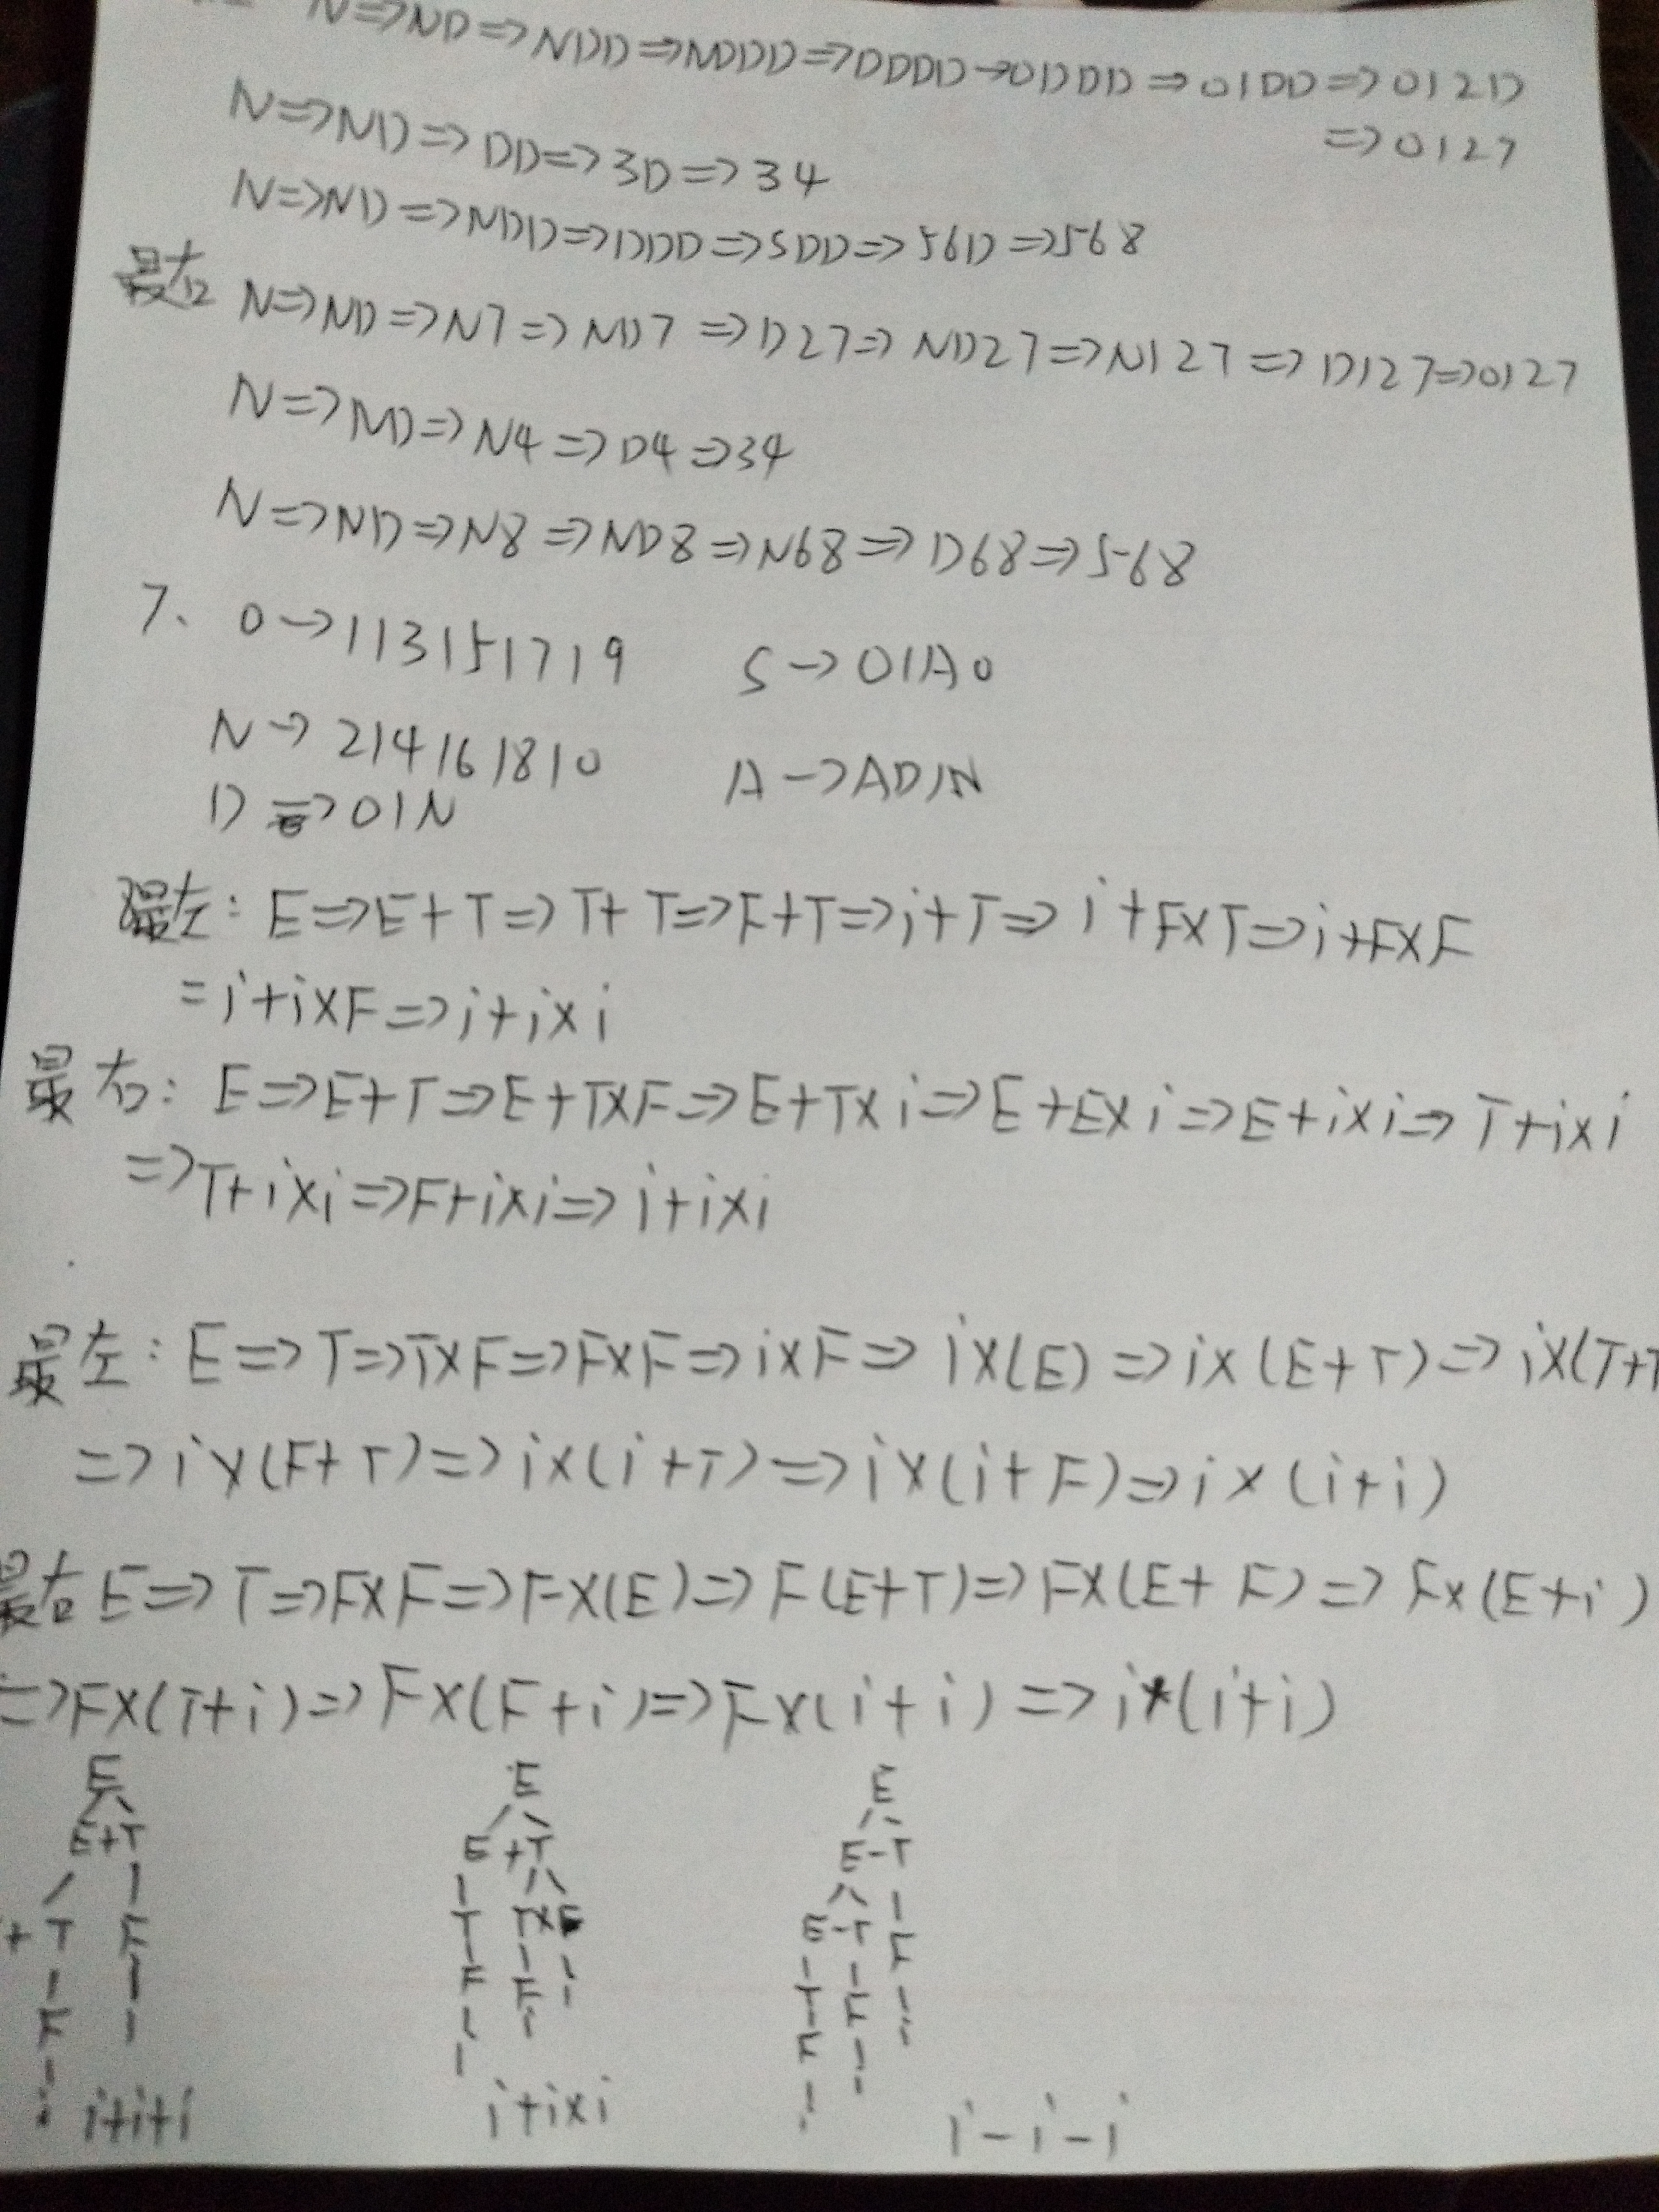 N=>ND=>NDD=>NDDD=>DDDD→0DDD=>01DD=>012D
=>0127
N=>ND=>DD=>3D=>34
N=>ND=>NDD=>DDD=>5DD=>56D=>568
最右 N=>ND=>N7=>ND7=>D27=>ND27=>N127=>D127=>0127
N=>ND=>N4=>D4=>34
N=>ND=>N8=>ND8=>N68=>D68=>568
7、 O→1|3|5|7|9 S→O|AO
N→2|4|6|8|0 A→AD|N
D=>O|N
最左: E=>E+T=>T+T=>F+T=>i+T=>i+F×T=>i+F×F
=i+i×F=>i+i×i
最右: E=>E+T=>E+T×F=>E+T×i=>E+E×i=>E+i×i=>T+i×i
=>T+i×i=>F+i×i=>i+i×i
最左: E=>T=>T×F=>F×F=>i×F=>i×(E)=>i×(E+T)=>i×(T+T
=>i×(F+T)=>i×(i+T)=>i×(i+F)=>i×(i+i)
最右 E=>T=>F×F=>F×(E)=>F(E+T)=>F×(E+F)=>F×(E+i)
=>F×(T+i)=>F×(F+i)=>F×(i+i)=>i*(i+i)
E E E
E+T E+T E-T
+ T F T T×F E-T F
F F F T F i
i i i F i
i+i+i i+i×i i-i-i